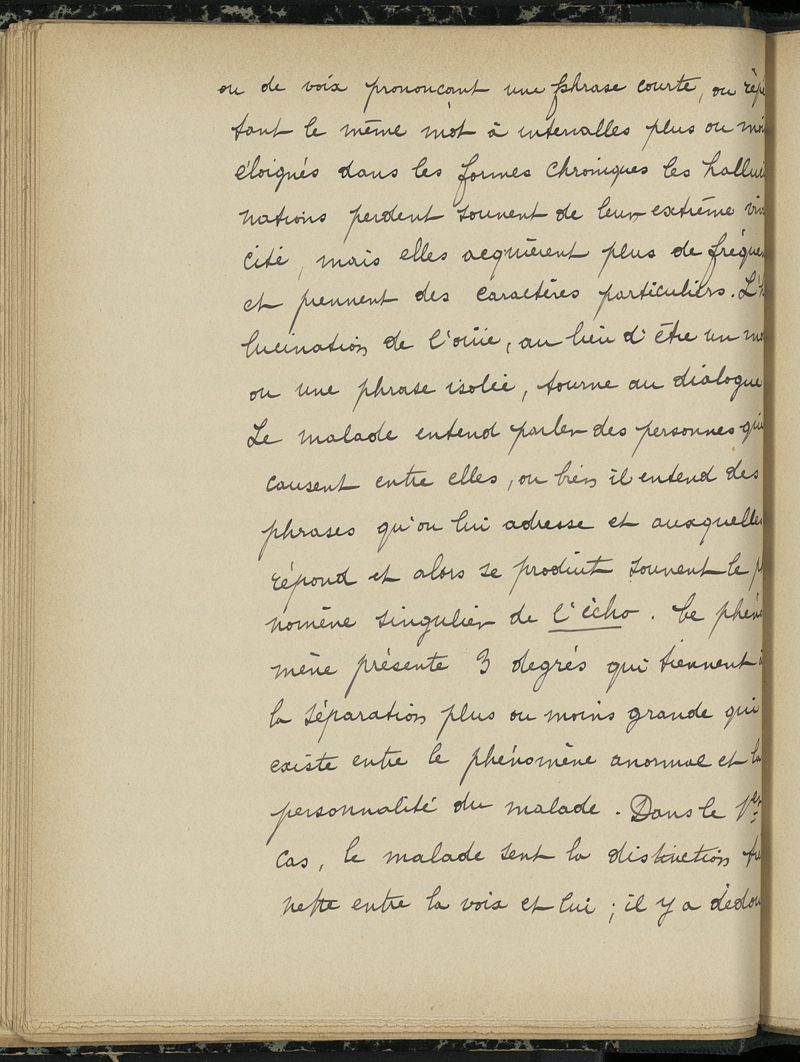 ou de voix prononcant une phrase courte, ou répé
tant le même mot à intervalles plus ou moi
éloignés dans les formes chroniques les halluci
nations perdent souvent de leur extrême viva
cité, mais elles acquièrent plus de fréquen
et prennent des caractères particuliers. L'h
lucination de l'ouïe, au lieu d'être un mo
ou une phrase isolée, tourne au dialogue
Le malade entend parler des personnes qui
causent entre elles, ou bien il entend des
phrases qu'on lui adresse et auxquelles
répond et alors se produit souvent le p
nomène singulier de l'écho. Ce phéno
mène présente 3 degrés qui tiennent à
la séparation plus ou moins grande qui
existe entre le phénomène anormal et la
personnalité du malade. Dans le 1er
cas, le malade sent la distinction trè
nette entre la voix et lui ; il y a dédou